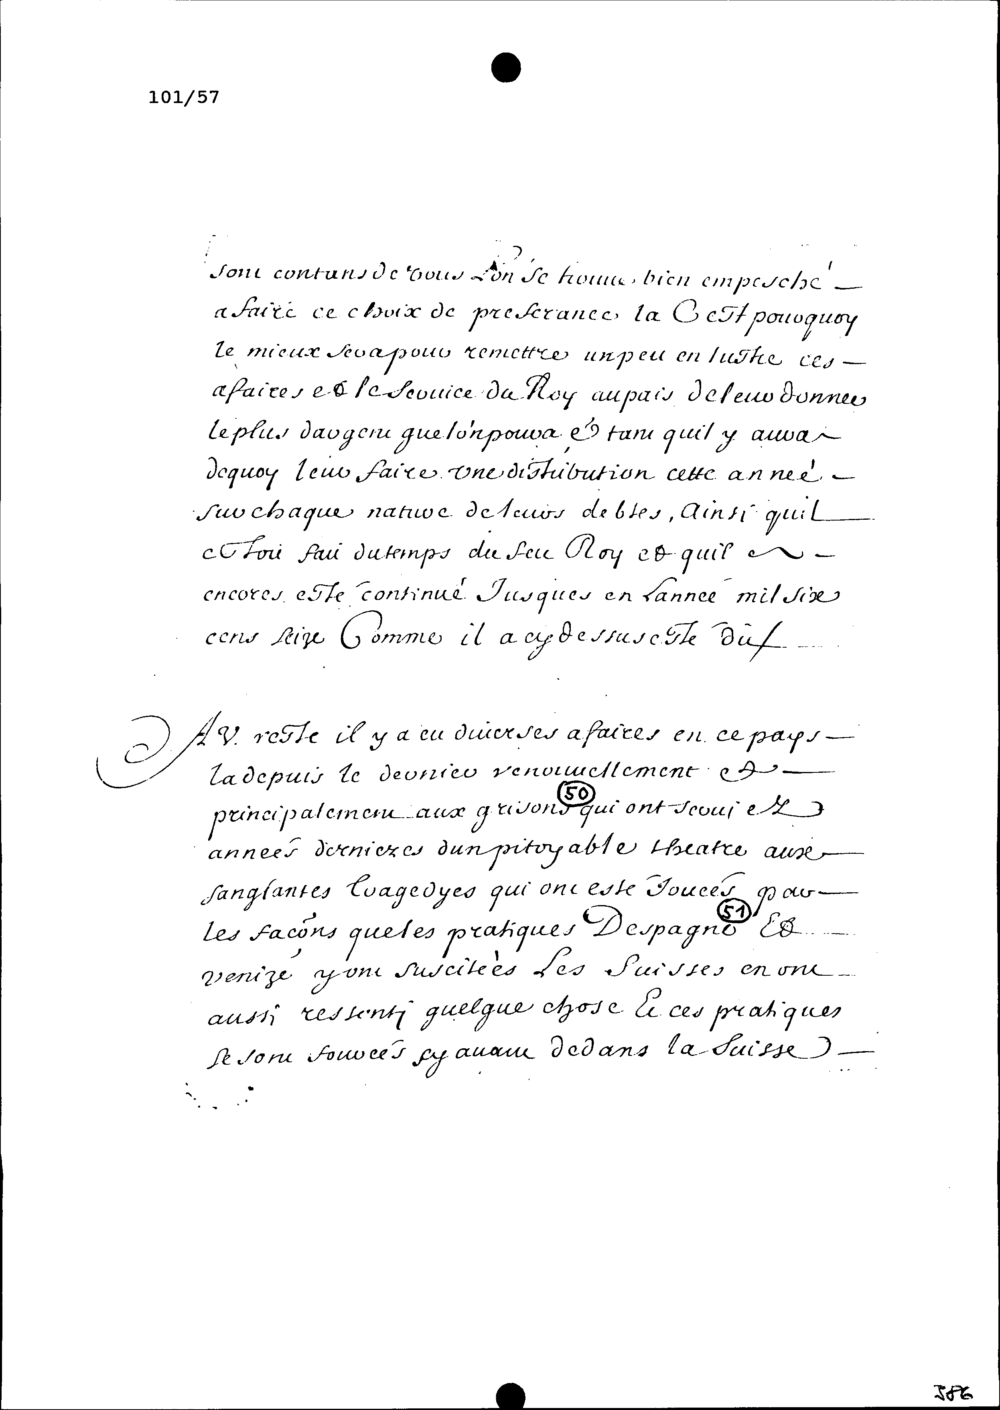 101/57
sont contans de tous Lon se trouue bien empesché
a faire ce choix de preferance la C est pourquoy
le mieux sera pour remettre un peu en lustre ces
afaires et le seruice du Roy au pais de leur donner
le plus dargent que lón poura et tant quil y aura
dequoy leur faire une distribution cette anneé
sur chaque nature de leurs debtes, Ainsi quil
estoit fait du temps du feu Roy et quil a
encores este continué Jusques en Lannee mil six
cens seize Comme il a cy dessus este dit
AV. reste il y a eu diuerses afaires en ce pays
la depuis le dernier renouuellement et
principalement aux grisons (50) qui ont serui ez
anneés dernieres dun pitoyable theatre aux
sanglantes tragedyes qui ont este Jouees par
les facons que les pratiques Despagne (51) Et
venize y ont suscitées Les Suisses en ont
aussi ressentj quelque chose Et ces pratiques
se sont fourees sy auant dedans la Suisse
386